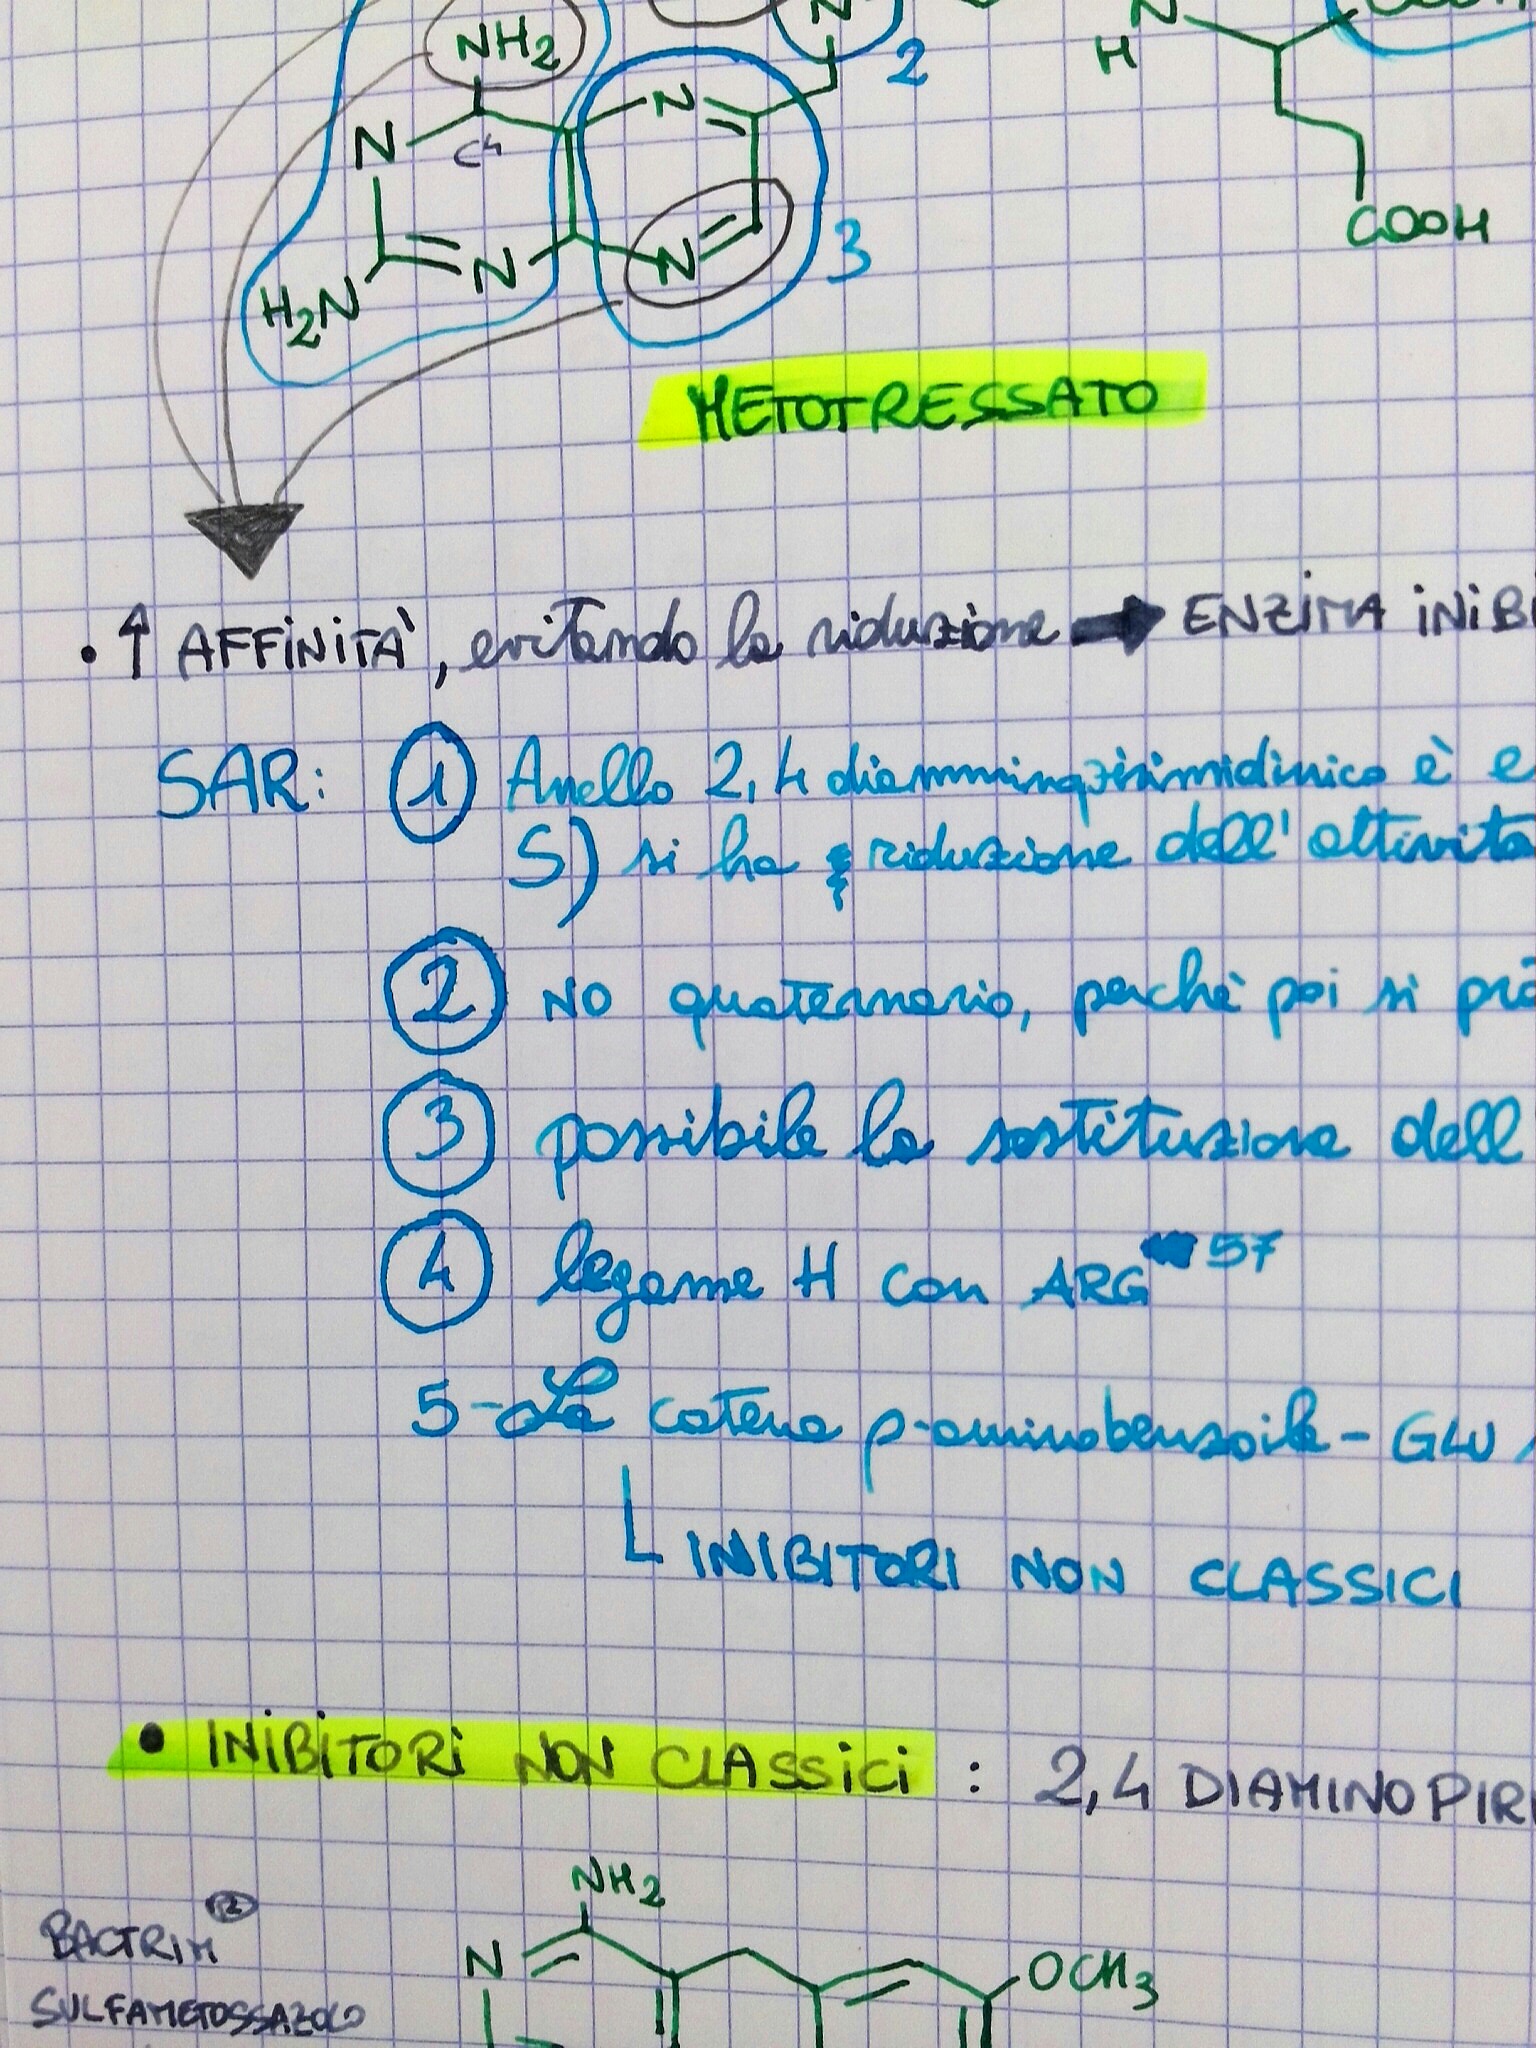 NH2
N
2
N
H
N
N
C4
COOH
N
N
3
H2N
METOTRESSATO
• ↑ AFFINITÀ, evitando la riduzione → ENZIMA INIBI
SAR: 1 Anello 2,4 diamminopirimidinico è e
S) si ha riduzione dell'attività
2 NO quaternario, perchè poi si pro
3 possibile la sostituzione dell
4 legame H con ARG 57
5-La catena p-aminobenzoila-GLU
INIBITORI NON CLASSICI
• INIBITORI NON CLASSICI : 2,4 DIAMINOPIRI
NH2
BACTRIM ®
N
OCH3
SULFAMETOSSAZOLO